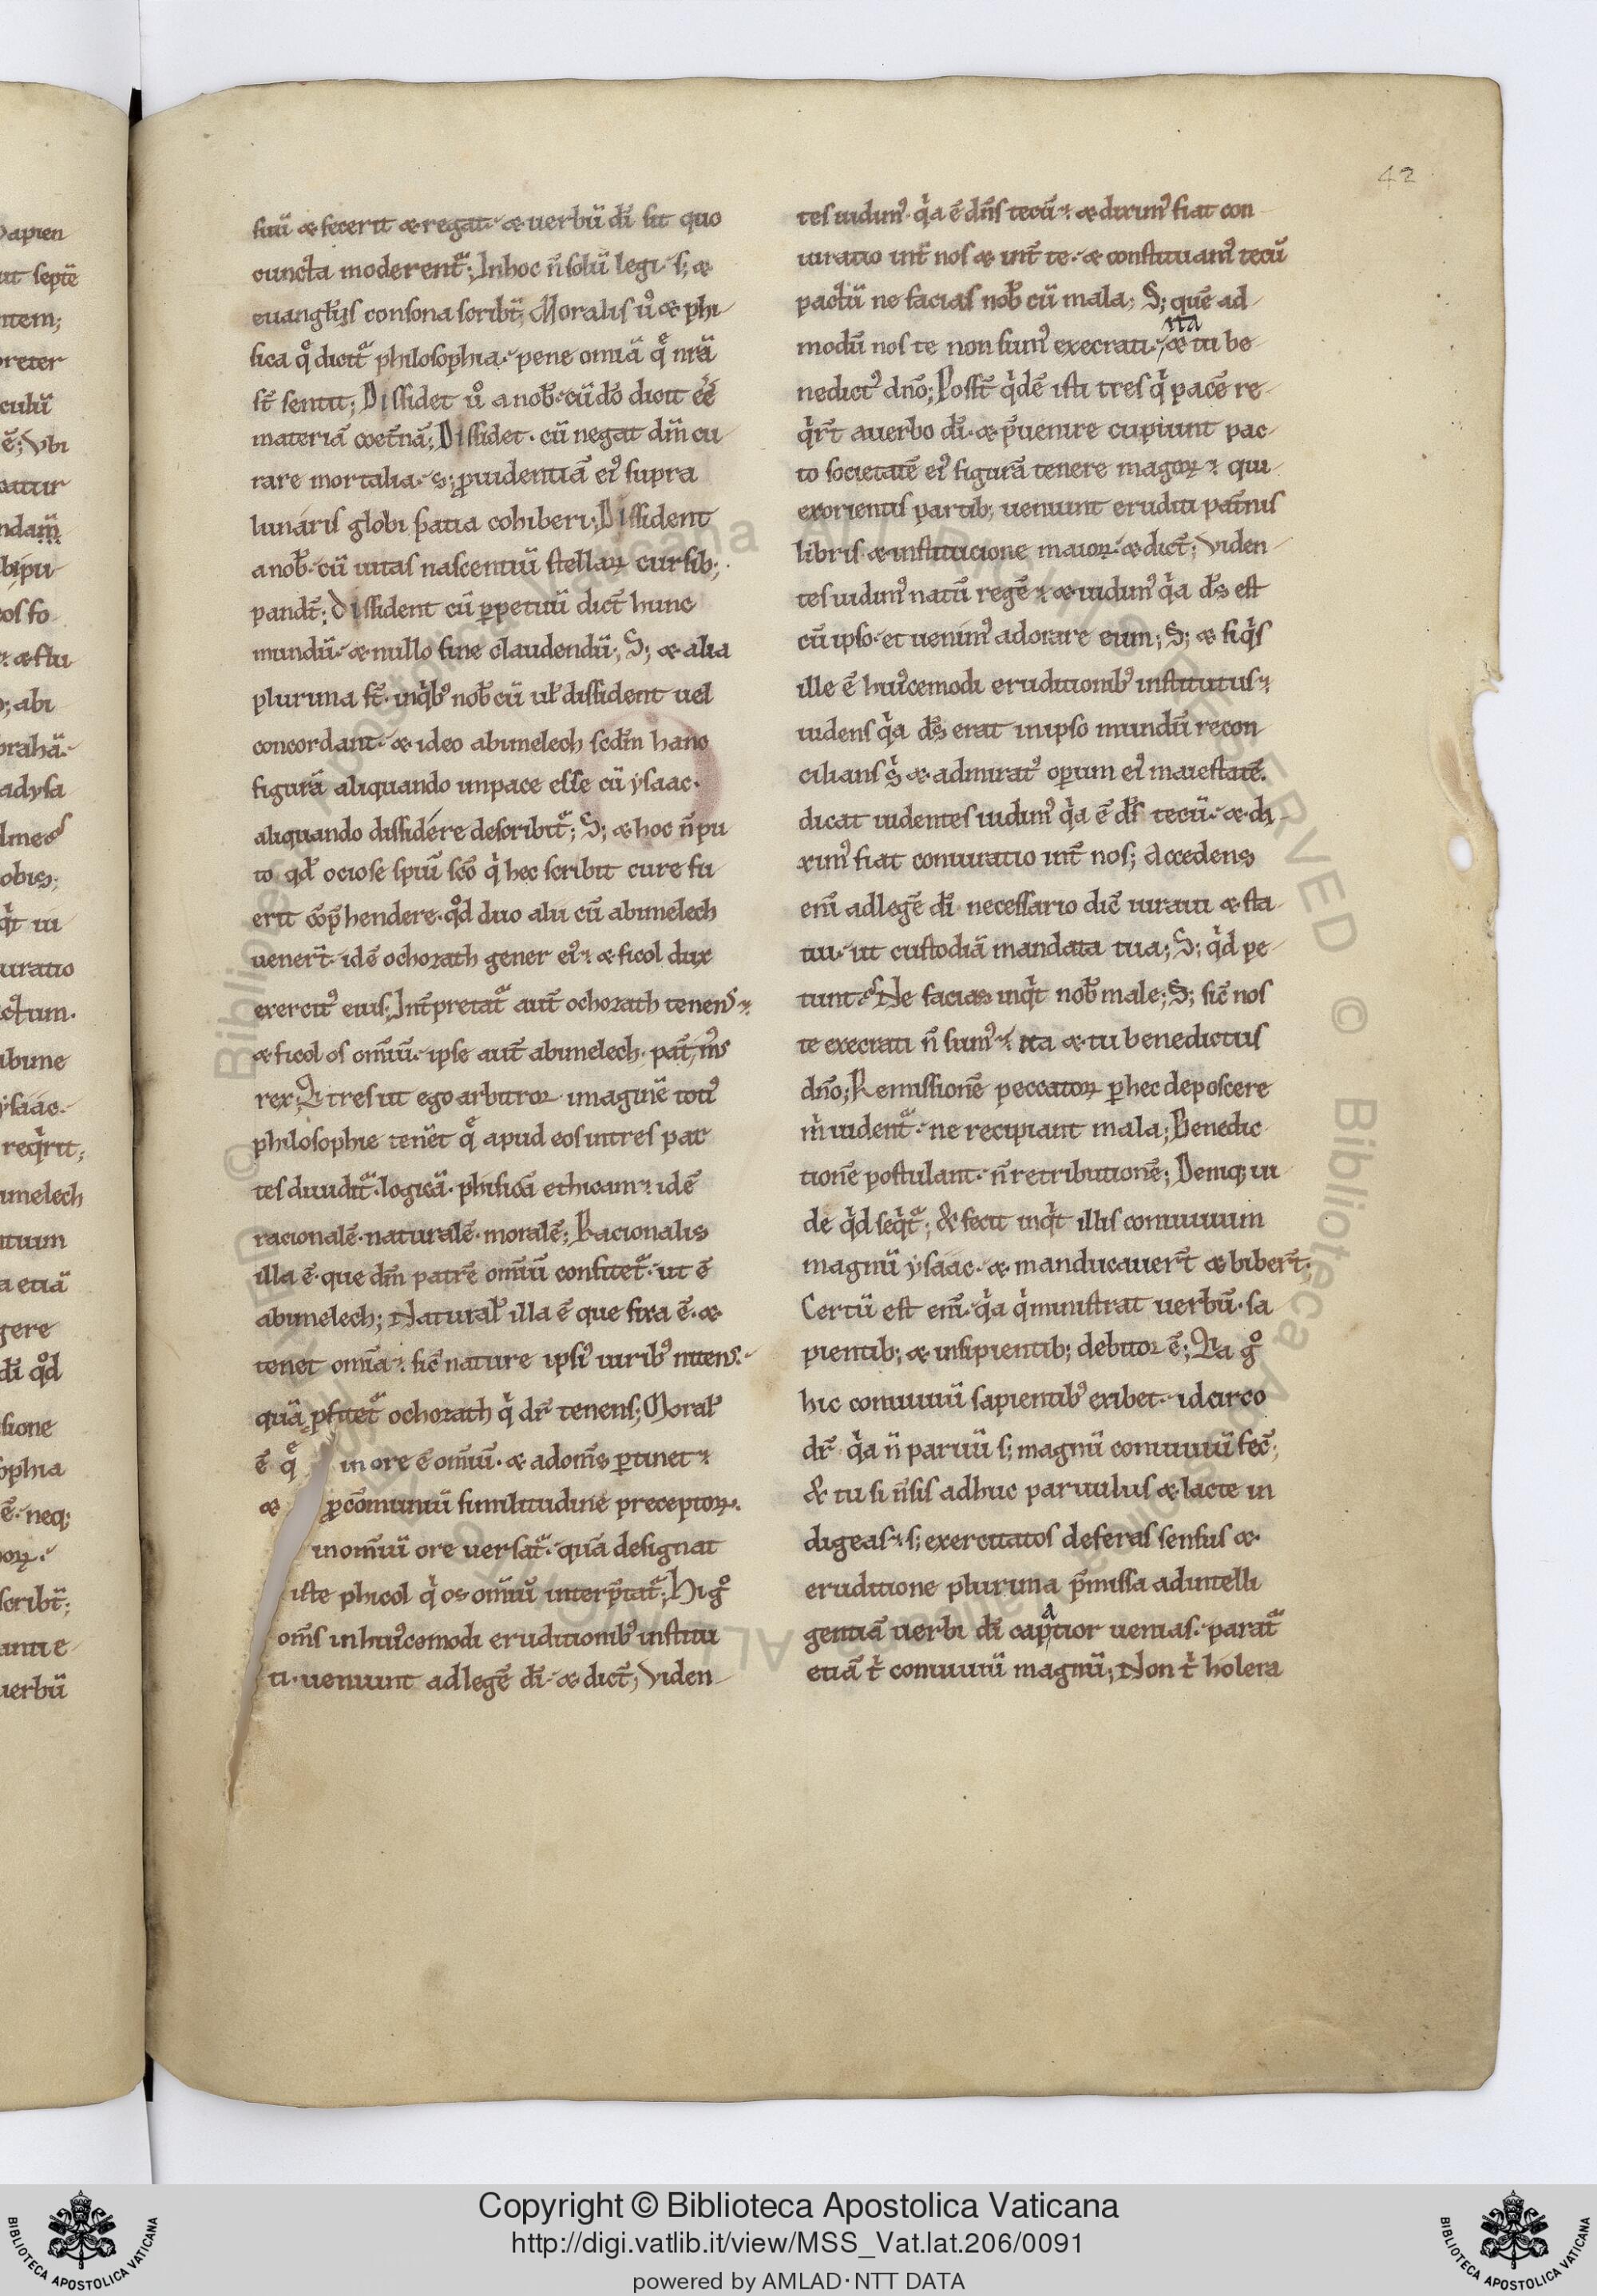 42
suū ⁊ fecerit ⁊ regat ⁊ uerbū dī sit quo
cuncta moderent᷑; In hoc n̄ solū legi s; ⁊
euangl̄ijs consona scribit; Moralis ů ⁊ phi
sica q̊ dicit᷑ philosophia pene omīa q̄ nr̄a
st̄ sentit; Dissidet ů a nob̄ cū dō dicit ee̅
materiā coet̄nā; Dissidet cū negat dm̄ cu
rare mortalia s; ꝓuidentiā ei᷒ supra
lunaris globi spatia cohiberi; Dissident
a nob̄ cū uitas nascentiū stellaꝝ cursib;
pandt̄; Dissident cū ꝑpetuū dict̄ hunc
mundū ⁊ nullo fine claudendū; S; ⁊ alia
plurima st̄ inq̇b᷒ nob̄cū ul̄ dissident uel
concordant ⁊ ideo abimelech scd̄m hanc
figurā aliquando inpace esse cū ysaac
aliquando dissidere describit᷑; S; ⁊ hoc n̄ pu
to qd̄ ociose spiū sc̄o q̇ hec scribit cure fu
erit cōp̄hendere qd̊ duo alii cū abimelech
uener̄t idē ochozath gener ei᷒ ⁊ ficol dux
exercit᷒ eius; Int̄pretat᷑ aut̄ ochozath tenens
⁊ ficol os omiū ipse aut̄ abimelech pat̄ m̄s
rex; Qi tres ut ego arbitror imaginē toti᷒
philosophie tenēt q̄ apud eos intres par
tes diuidit᷑ logicā phisicā ethicam idē
racionalē naturalē moralē; Racionalis
illa ē que dm̄ patrē omiū confitet᷑ ut ē
abimelech; Natural̄ illa ē que fixa ē ⁊
tenet omīa sic̄ nature ipsi᷒ uirib᷒ nitens
quā ꝓfitet᷑ ochozath q̇ dr̄ tenens; Moral̄
ē q̄ in ore ē omiū ⁊ ad om̄s ꝑtinet
⁊ ꝓ cōmuniū similitudine preceptoꝝ
in omiū ore uersat᷑ quā designat
iste phicol q̇ os omiū interp̄tat᷑; Hi g̊
om̄s in hui᷒cemodi eruditionib᷒ institu
ti ueniunt ad legē dī ⁊ dict̄; Viden
tes uidim᷒ q̇a ē dn̄s tecū ⁊ dixim᷒ fiat con
iuratio int̄ nos ⁊ int̄ te ⁊ constituam᷒ tecū
pactū ne facias nob̄cū mala; S; quē ad
modū nos te non sum᷒ execrati ita ⁊ tu be
nedict᷒ dn̄o; Posst̄ q̇dē isti tres q̇ pacē re
q̇rt̄ a uerbo dī ⁊ p̄uenire cupiunt pac
to societatē ei᷒ figurā tenere magoꝝ qui
exorientis partib; ueniunt eruditi pat̄nis
libris ⁊ institucione maioꝝ ⁊ dict̄; Viden
tes uidim᷒ natū regē ⁊ uidim᷒ q̇a ds̄ est
cū ipso et uenim᷒ adorare eum; S; ⁊ siq̇s
ille ē hui᷒cemodi eruditionib᷒ institutus
uidens q̇a ds̄ erat in ipso mundū recon
cilians s̊ ⁊ admirat᷒ operum ei᷒ maiestatē
dicat uidentes uidim᷒ q̇a ē dn̄s tecū ⁊ di
xim᷒ fiat coniuratio int̄ nos; Accedens
enī ad legē dī necessario dic̄ iuraui ⁊ sta
tui ut custodiā mandata tua; S; q̇d pe
tunt; Ne facias inq̇t nob̄ male; S; sic̄ nos
te execrati n̄ sum᷒ ita ⁊ tu benedictus
dn̄o; Remissionē peccatoꝝ ꝑ hec deposcere
m̊ uident᷑ ne recipiant mala; Benedic
tionē postulant n̄ retributionē; Deniq; ui
de q̇d seq̇t᷑; & fecit inq̇t illis conuiuium
magnū ysaac ⁊ manducauer̄t ⁊ biber̄t
Certū est enī q̇a q̇ ministrat uerbū sa
pientib; ⁊ insipientib; debitor ē; Qa g̊
hic conuiuiū sapientib᷒ exibet idcirco
dr̄ q̇a n̄ paruū s; magnū conuiuiū fec̄;
& tu si n̄ sis adhuc paruulus ⁊ lacte in
digeas s; exercitatos deferas sensus ⁊
eruditione plurima p̄missa ad intelli
gentiā uerbi dī capatior uenias parat᷑
etiā t̊ conuiuiū magnū; Non t̊ holera
Copyright © Biblioteca Apostolica Vaticana
http://digi.vatlib.it/view/MSS_Vat.lat.206/0091
powered by AMLAD·NTT DATA